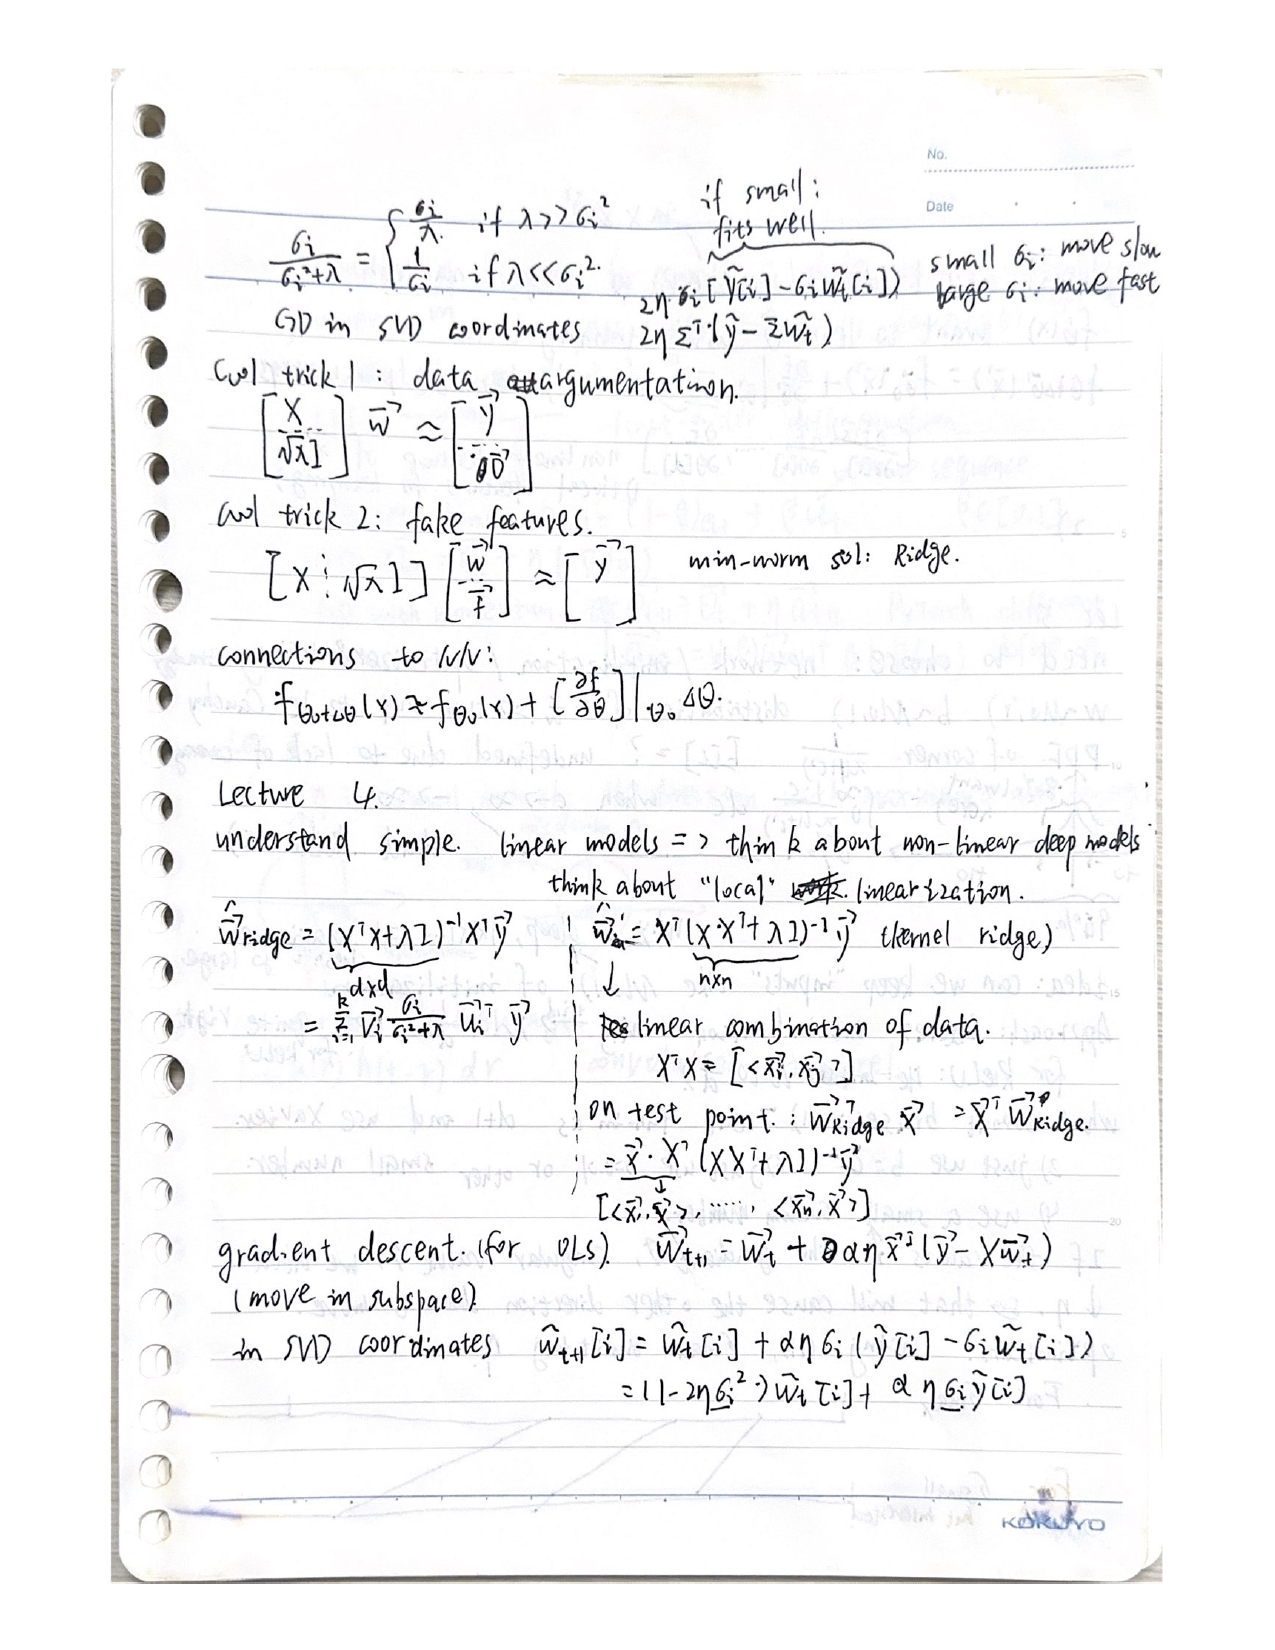 No.
Date
σi/(σi²+λ) = { σi/λ if λ>>σi²
1/σi if λ<<σi².
if small:
fits well.
2η σi [ỹ[i] - σi w̃t[i])
small σi: move slow
large σi: move fast
GD in SVD coordinates 2η Σᵀ(ỹ - Σw̃t)
Cool trick 1: data argumentation.
[X / √λI] w⃗ ≈ [y⃗ / 0⃗]
Cool trick 2: fake features.
[X ⋮ √λI] [w⃗ / f⃗] ≈ [y⃗] min-norm sol: Ridge.
connections to NN:
fθ₀+Δθ(x) ≈ fθ₀(x) + [∂f/∂θ]|θ₀ Δθ.
Lecture 4.
understand simple. linear models => think about non-linear deep models
think about "local" linearization.
ŵ⃗Ridge = (XᵀX+λI)⁻¹Xᵀy⃗
d×d
= Σᵏᵢ₌₁ v⃗i σi/(σi²+λ) u⃗iᵀ y⃗
ŵ⃗ = Xᵀ(X·Xᵀ+λI)⁻¹y⃗ (kernel ridge)
n×n
↓
linear combination of data.
XᵀX = [<x⃗i, x⃗j>]
on test point: w⃗Ridgeᵀ x⃗ = x⃗ᵀ w⃗Ridge.
= x⃗·Xᵀ(XXᵀ+λI)⁻¹y⃗
↓
[<x⃗, x⃗>, ......, <x⃗n, x⃗>]
gradient descent. (for OLS). w⃗t+1 = w⃗t + αη x⃗ᵀ(y⃗ - Xw⃗t)
(move in subspace).
in SVD coordinates w̃t+1[i] = w̃t[i] + αη σi (ỹ[i] - σi w̃t[i])
= (1-2ησi²)w̃t[i] + αησiỹ[i]
KOKUYO